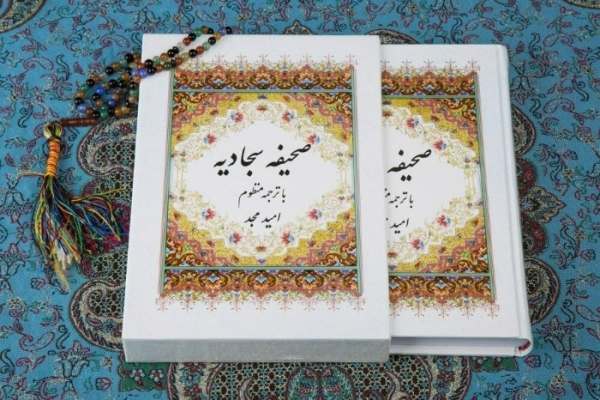 صحیفه سجادیه
با ترجمه منظوم
امید مجد
صحیفه
با ترجمه منظوم
امید